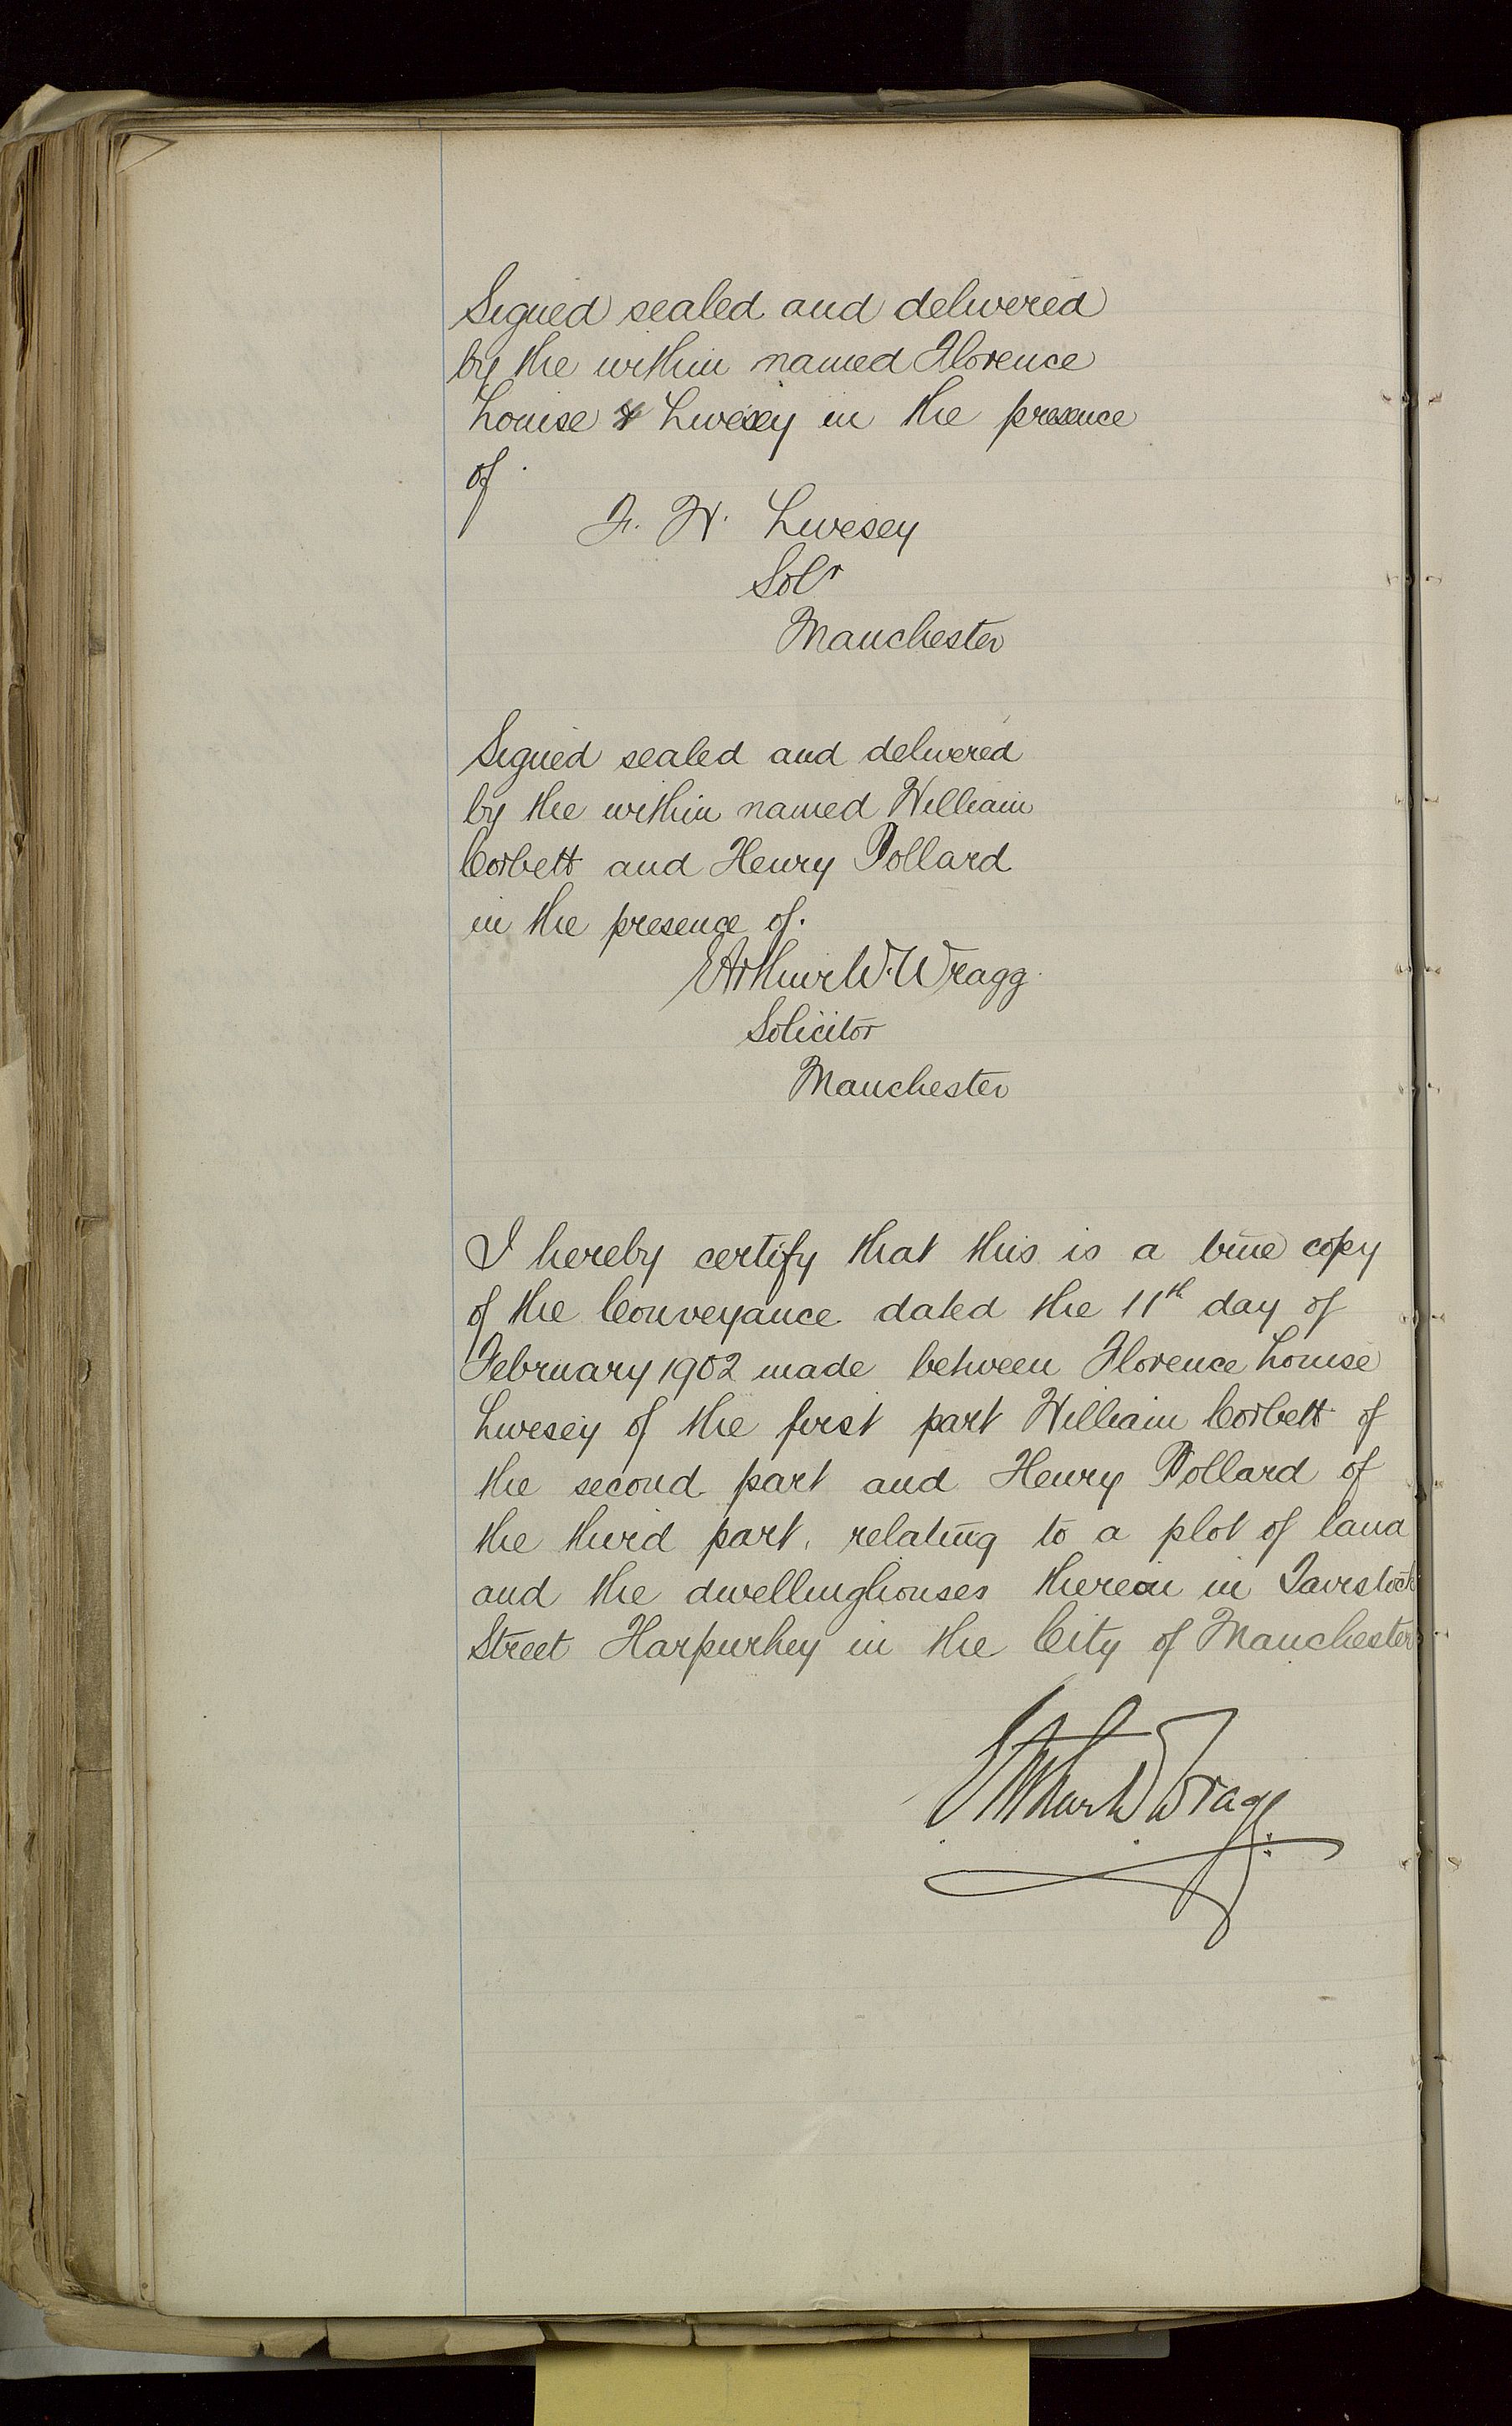 Signed sealed and delivered
by the within named Florence
Louise & Livesey in the presence
of.
F. W. Livesey
Solr
Manchester
Signed sealed and delivered
by the within named William
Corbett and Henry Pollard
in the presence of.
E Arthur W. Wragg.
Solicitor
Manchester
I hereby certify that this is a true copy
of the Conveyance dated the 11th day of
February 1902 made between Florence Louise
Livesey of the first part William Corbett of
the second part and Henry Pollard of
the third part, relating to a plot of land
and the dwellinghouses thereon in Tavistock
Street Harpurhey in the City of Manchester
E Arthur W Wragg